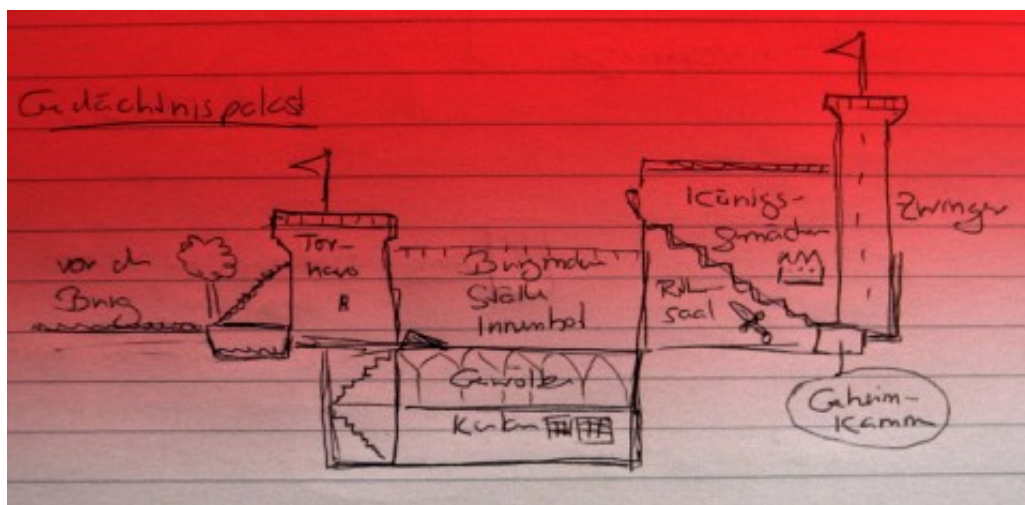 Gedächtnispalast
vor der
Burg
Tor-
haus
Burgmauer
Ställe
Innenhof
Gewölbe
Kerker
Königs-
gemächer
saal
Zwinger
Geheim-
kammer